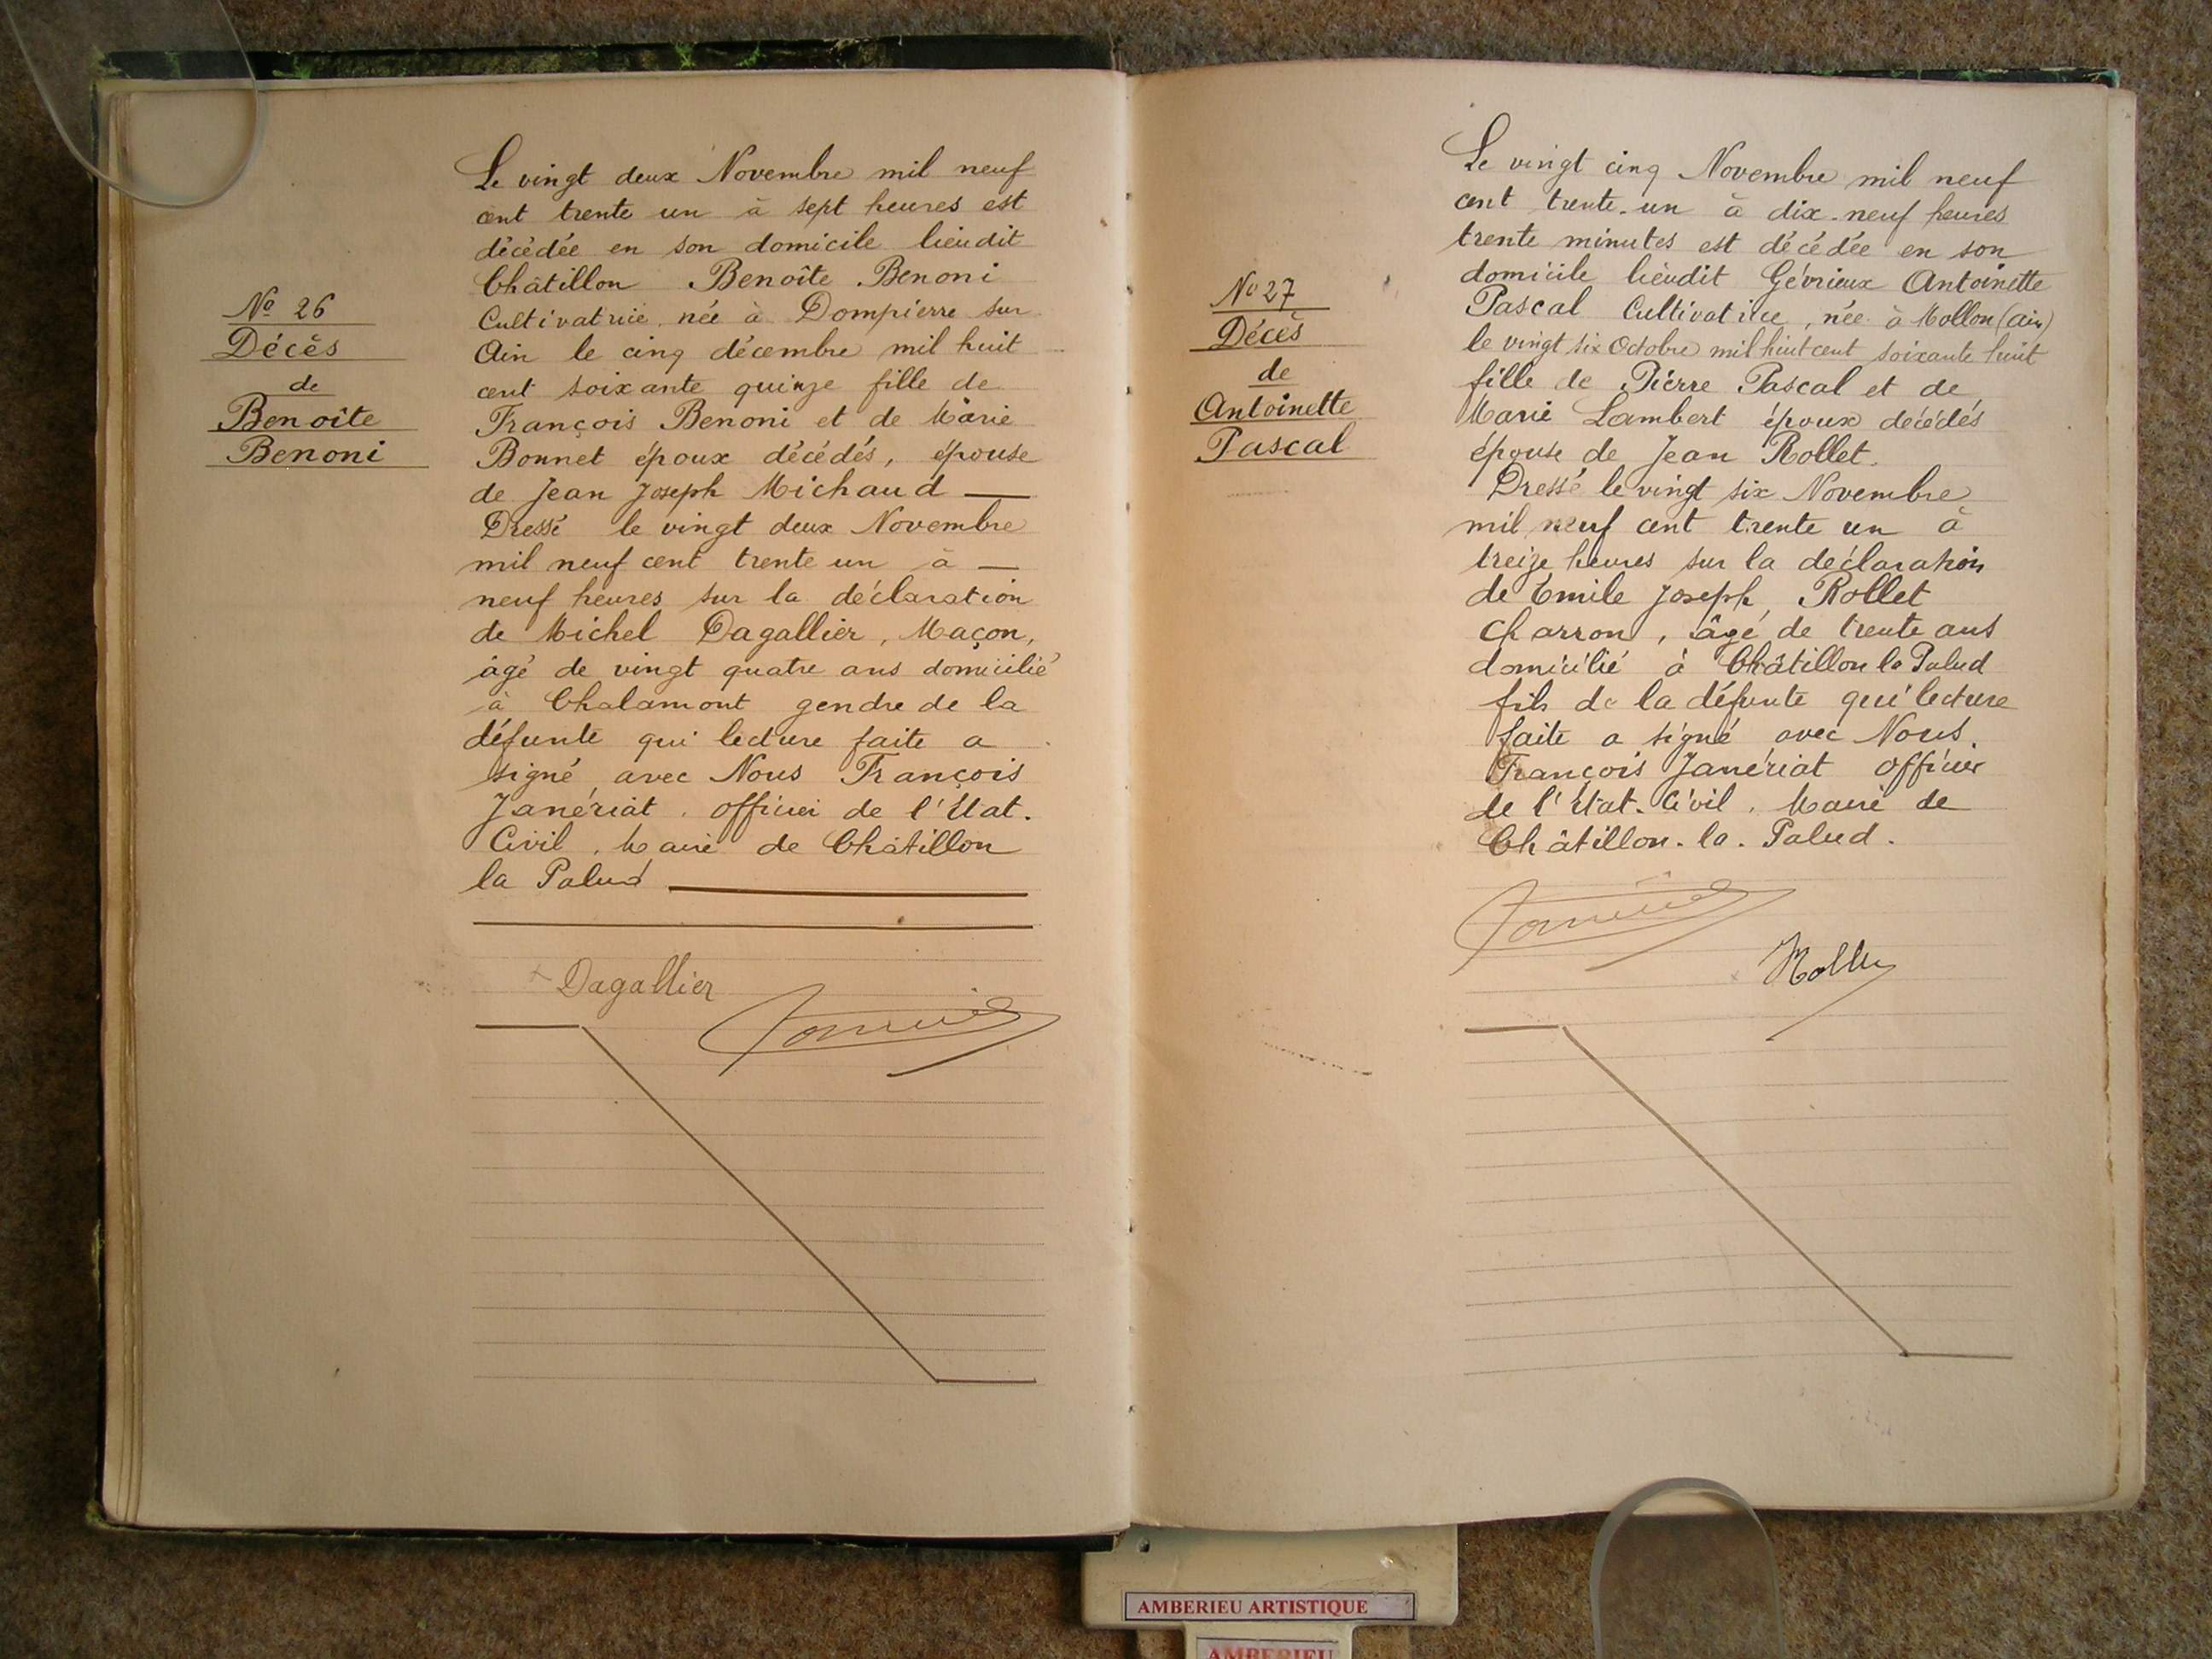 No 26
Décès
de
Benoîte
Benoni
Le vingt deux Novembre mil neuf
cent trente un à sept heures est
décédée en son domicile lieudit
Châtillon Benoîte Benoni
Cultivatrice née à Dompierre sur
Ain le cinq décembre mil huit
cent soixante quinze fille de
François Benoni et de Marie
Bonnet époux décédés, épouse
de Jean Joseph Michaud
Dressé le vingt deux Novembre
mil neuf cent trente un à
neuf heures sur la déclaration
de Michel Dagallier, Maçon,
âgé de vingt quatre ans domicilié
à Chalamont gendre de la
défunte qui lecture faite a
signé avec Nous François
Janériat officier de l'Etat.
Civil, Maire de Châtillon
la Palud
Dagallier
No 27
Décès
de
Antoinette
Pascal
Le vingt cinq Novembre mil neuf
cent trente-un à dix-neuf heures
trente minutes est décédée en son
domicile lieudit Gévrieux Antoinette
Pascal Cultivatrice, née à Mollon (Ain)
le vingt six Octobre mil huit cent soixante huit
fille de Pierre Pascal et de
Marie Lambert époux décédés
épouse de Jean Rollet.
Dressé le vingt six Novembre
mil neuf cent trente un à
treize heures sur la déclaration
de Émile Joseph Rollet
Charron, âgé de trente ans
domicilié à Châtillon la Palud
fils de la défunte qui lecture
faite a signé avec Nous
François Janériat officier
de l'Etat-Civil, Maire de
Châtillon-la-Palud.
AMBERIEU ARTISTIQUE
AMBERIEU